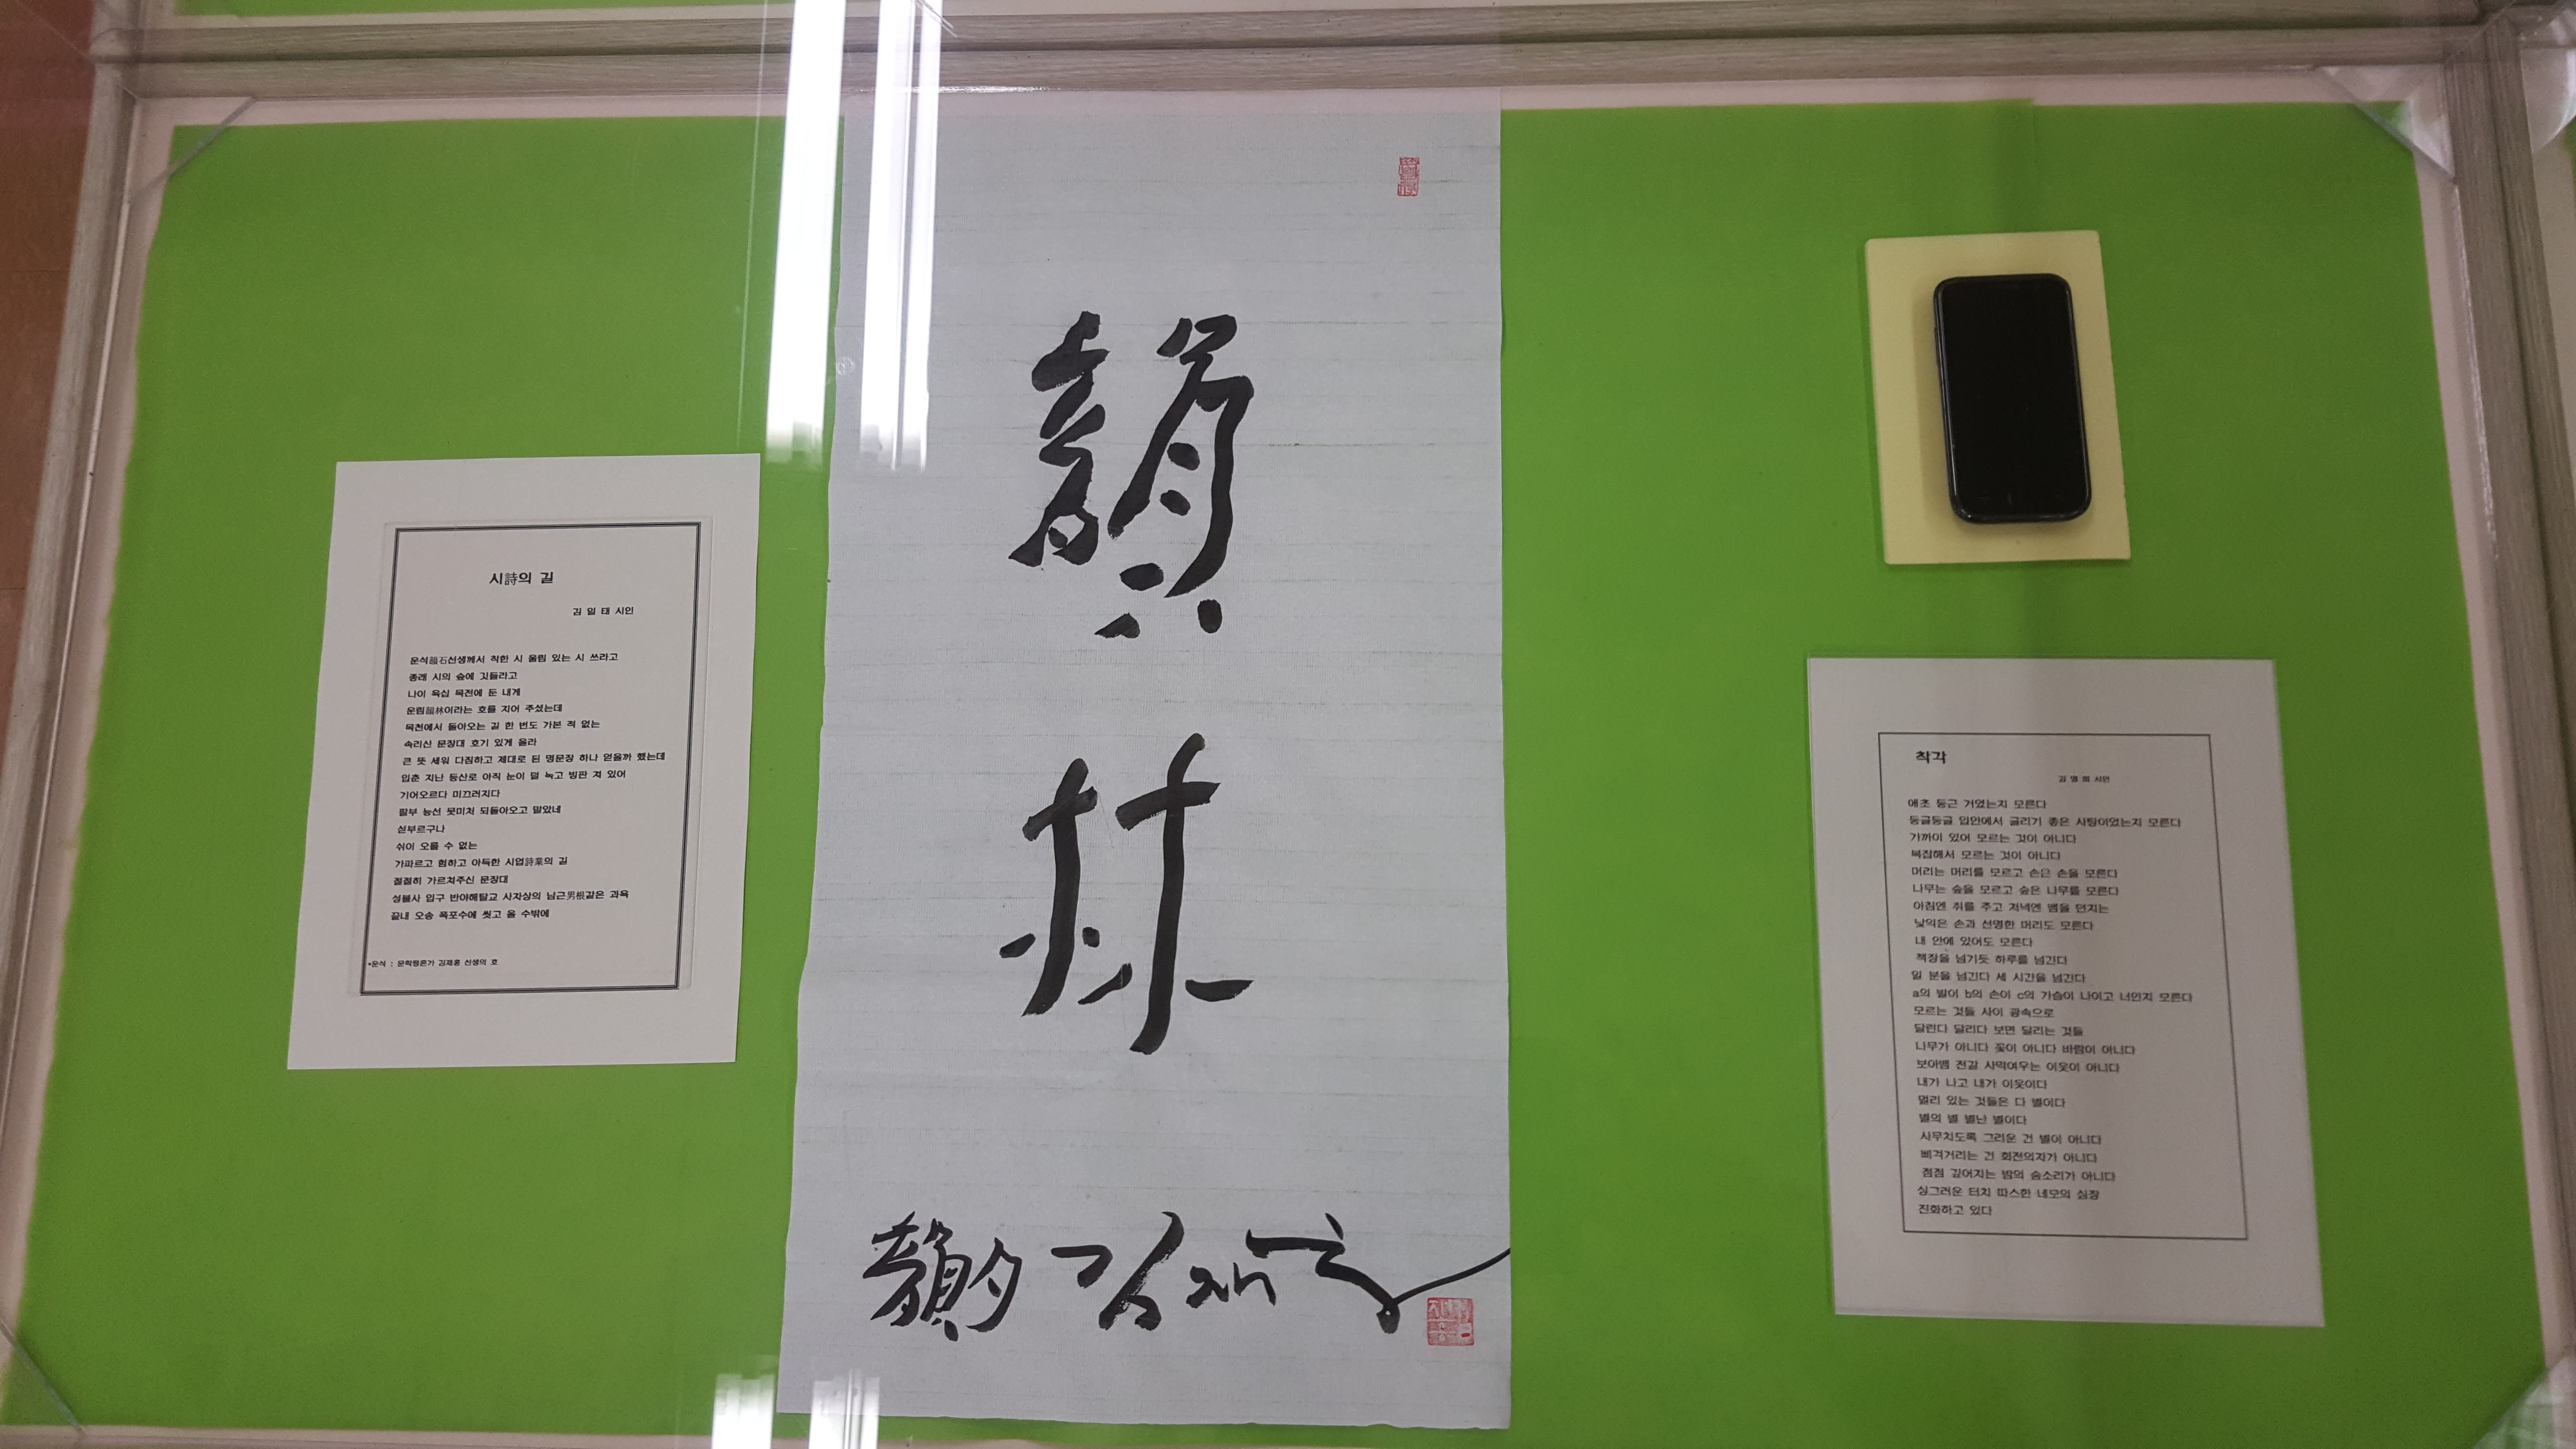 시詩의 길
김 일 태 시인
운석韻石선생께서 착한 시 울림 있는 시 쓰라고
종래 시의 숲에 깃들라고
나이 육십 목전에 둔 내게
운림韻林이라는 호를 지어 주셨는데
목천에서 돌아오는 길 한 번도 가본 적 없는
속리산 문장대 호기 있게 올라
큰 뜻 세워 다짐하고 제대로 된 명문장 하나 얻을까 했는데
입춘 지난 등산로 아직 눈이 덜 녹고 빙판 져 있어
기어오르다 미끄러지다
팔부 능선 못미처 되돌아오고 말았네
섣부르구나
쉬이 오를 수 없는
가파르고 험하고 아득한 시업詩業의 길
절절히 가르쳐주신 문장대
성불사 입구 반야해탈교 사자상의 남근男根같은 과욕
끝내 오송 폭포수에 씻고 올 수밖에
*운석 : 문학평론가 김재홍 선생의 호
韻
林
韻石 김재홍
착각
김 명 희 시인
애초 둥근 거였는지 모른다
둥글둥글 입안에서 굴리기 좋은 사탕이었는지 모른다
가까이 있어 모르는 것이 아니다
복잡해서 모르는 것이 아니다
머리는 머리를 모르고 손은 손을 모른다
나무는 숲을 모르고 숲은 나무를 모른다
아침엔 쥐를 주고 저녁엔 뱀을 던지는
낯익은 손과 선명한 머리도 모른다
내 안에 있어도 모른다
책장을 넘기듯 하루를 넘긴다
일 분을 넘긴다 세 시간을 넘긴다
a의 발이 b의 손이 c의 가슴이 나이고 너인지 모른다
모르는 것들 사이 광속으로
달린다 달리다 보면 달리는 것들
나무가 아니다 꽃이 아니다 바람이 아니다
보아뱀 전갈 사막여우는 이웃이 아니다
내가 나고 내가 이웃이다
멀리 있는 것들은 다 별이다
별의 별 별난 별이다
사무치도록 그리운 건 별이 아니다
삐걱거리는 건 회전의자가 아니다
점점 깊어지는 밤의 숨소리가 아니다
싱그러운 터치 따스한 네모의 심장
진화하고 있다